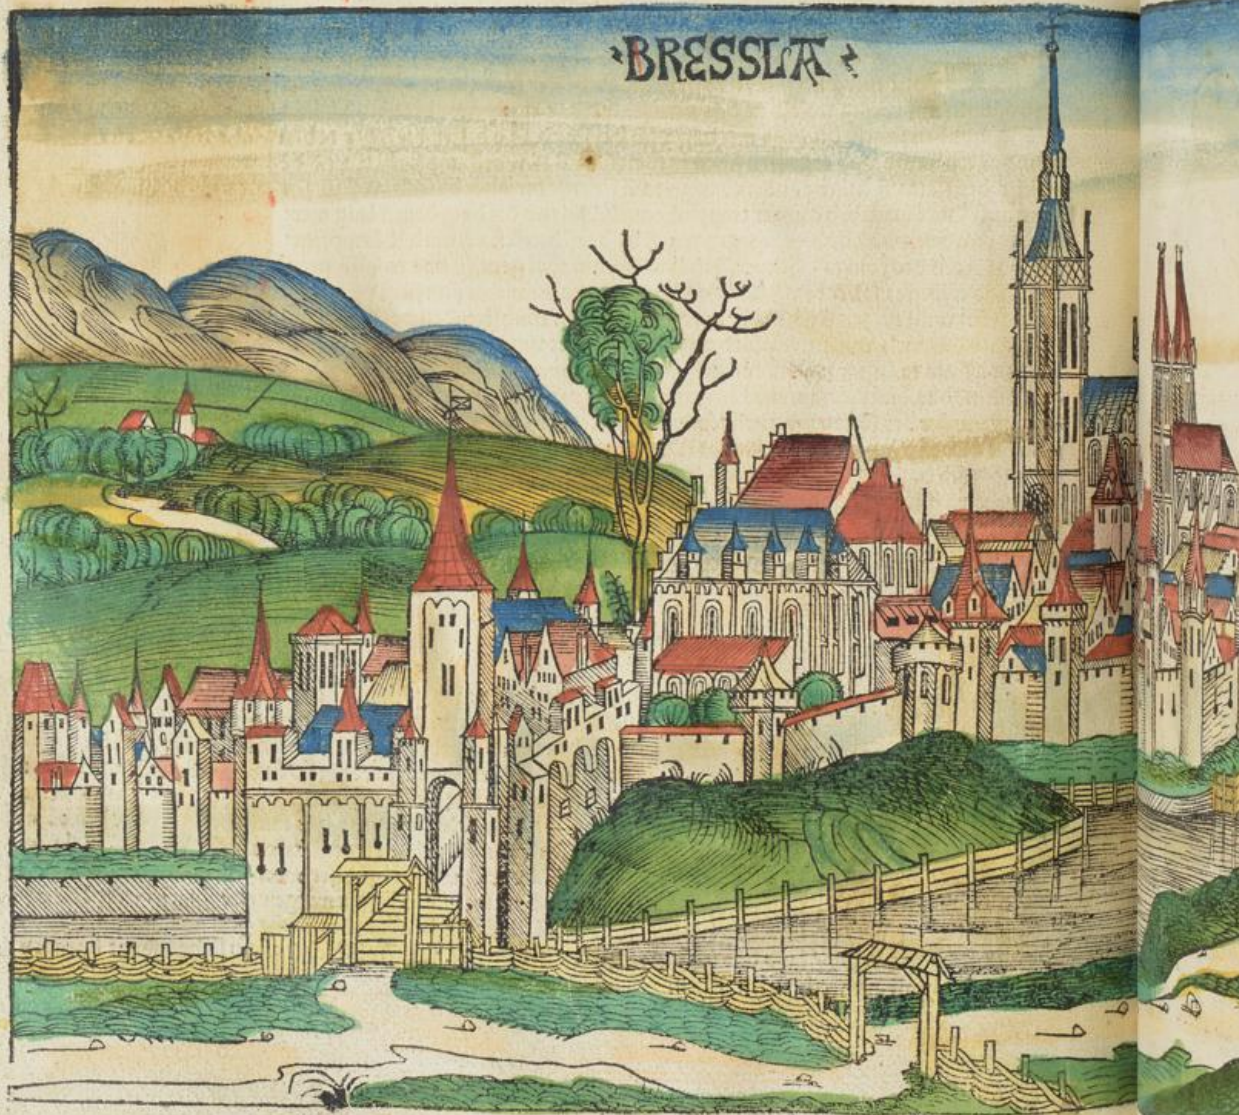 ·BRESSLA·